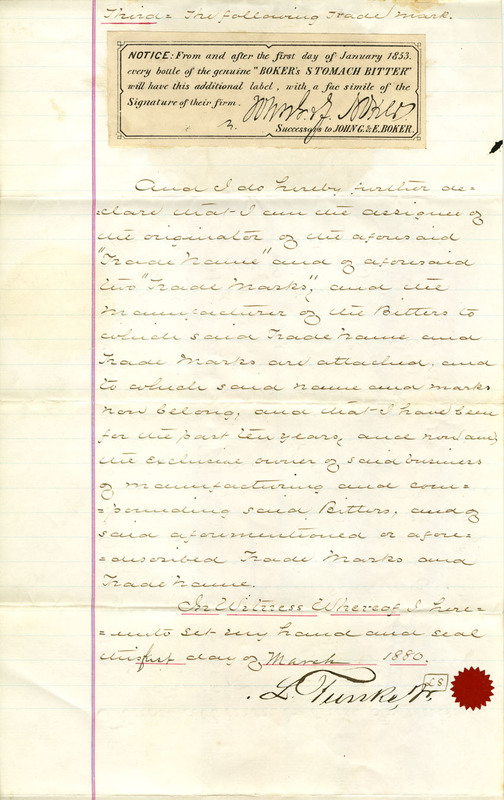 Third= The following Trade Mark.
NOTICE: From and after the first day of January 1853.
every bottle of the genuine "BOKER's STOMACH BITTER"
will have this additional label, with a fac simile of the
Signature of their firm.
Successors to JOHN G. & E. BOKER.
And I do hereby further de=
=clare that I am the assignee of
the originator of the aforesaid
"Trade Name" and of aforesaid
two "Trade Marks", and the
Manufacturer of the Bitters to
which said Trade Name and
Trade Marks are attached, and
to which said name and marks
now belong, and that I have been
for the past ten years, and now am,
the exclusive owner of said business
of manufacturing and com=
=pounding said Bitters, and of
said aforementioned or afore=
=described Trade Marks and
Trade Name.
In Witness Whereof I here=
=unto set my hand and seal
this first day of March 1880.
L. Funke, Jr.
LS